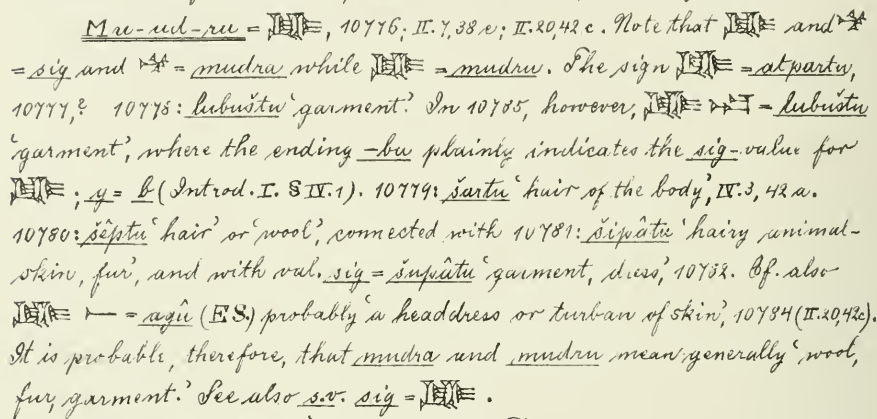 Mu-ud-ru = 𒋠, 10776; II. 7, 38 e; II. 20, 42 c. Note that 𒋠 and
= sig and = mudra while 𒋠 = mudru. The sign 𒋠 = atpartu,
10777,? 10778: lubuštu 'garment'. In 10785, however, 𒋠 = lubuštu
'garment', where the ending -bu plainly indicates the sig-value for
𒋠; g = b (Introd. I. § IV. 1). 10779: šartu 'hair of the body', IV. 3, 42 a.
10780: šêptu 'hair' or 'wool', connected with 10781: šipâtu 'hairy animal-
skin, fur', and with val. sig = šupâtu 'garment, dress', 10782. Cf. also
𒋠 𒁹 = agû (ES.) probably 'a headdress or turban of skin', 10784 (II. 20, 42c).
It is probable, therefore, that mudra and mudru mean generally 'wool,
fur, garment.' See also s.v. sig = 𒋠.